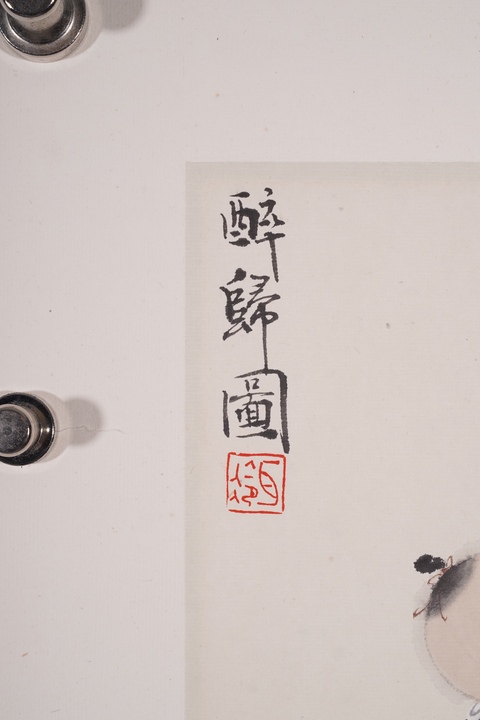 醉歸圖